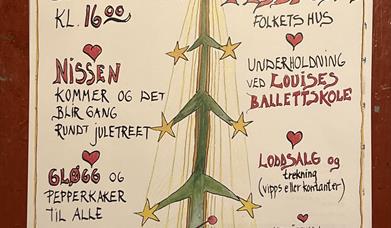 KL. 1600
NISSEN
KOMMER OG DET
BLIR GANG
RUNDT JULETREET
GLØGG OG
PEPPERKAKER
TIL ALLE
FOLKETS HUS
UNDERHOLDNING
VED LOUISES
BALLETTSKOLE
LODDSALG og
trekning
(vipps eller kontanter)